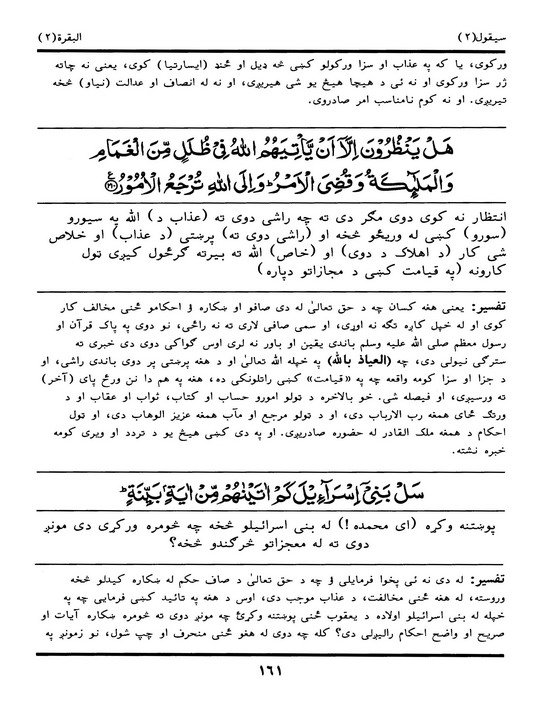 سيقول(٢)
البقرة(٢)
ورکوی، یا که په عذاب او سزا ورکولو کښی څه ډیل او ځنډ (ایسارتیا) کوی، یعنی نه چاته
ژر سزا ورکوی او نه ئی د هیچا هیڅ یو شی هیریږی، او نه له انصاف او عدالت (نیاو) څخه
تیریږی. او نه کوم نامناسب امر صادروی.
هَلْ يَنْظُرُوْنَ اِلَّآ اَنْ يَّاْتِيَهُمُ اللهُ فِيْ ظُلَلٍ مِّنَ الْغَمَامِ
وَالْمَلٰٓئِكَةُ وَقُضِيَ الْاَمْرُ ؕ وَاِلَى اللهِ تُرْجَعُ الْاُمُوْرُ
انتظار نه کوی دوی مګر دی ته چه راشی دوی ته (عذاب د) الله په سیورو
(سورو) کښی له وریځو څخه او (راشی دوی ته) پرښتی (د عذاب) او خلاص
شی کار (د اهلاک د دوی) او (خاص) الله ته بیرته ګرځول کیږی ټول
کارونه (په قیامت کښی د مجازاتو دپاره)
تفسیر: یعنی هغه کسان چه د حق تعالیٰ له دی صافو او ښکاره ؤ احکامو ځنی مخالف کار
کوی او له خپل کاږه تګه نه اوړی، او سمی صافی لاری ته نه راځی، نو دوی په پاک قرآن او
رسول معظم صلی الله علیه وسلم باندی یقین او باور نه لری اوس ګواکی دوی دی خبری ته
سترګی نیولی دی، چه (العیاذ بالله) په خپله الله تعالیٰ او د هغه پرښتی پر دوی باندی راشی، او
د جزا او سزا کومه واقعه چه په «قیامت» کښی راتلونکی ده، هغه په هم دا نن ورځ پای (آخر)
ته ورسیږی، او فیصله شی. خو بالاخره د ټولو امورو حساب او کتاب، ثواب او عقاب او د
ورتګ ځای همغه رب الارباب دی، او د ټولو مرجع او مآب همغه عزیز الوهاب دی، او ټول
احکام د همغه ملک القادر له حضوره صادریږی. او په دی کښی هیڅ یو د تردد او ویری کومه
خبره نشته.
سَلْ بَنِيْٓ اِسْرَآءِيْلَ كَمْ اٰتَيْنٰهُمْ مِّنْ اٰيَةٍۭ بَيِّنَةٍ ؕ
پوښتنه وکړه (ای محمده !) له بنی اسرائیلو څخه چه څومره ورکړی دی مونږ
دوی ته له معجزاتو څرګندو څخه؟
تفسیر: له دی نه ئی پخوا فرمایلی ؤ چه د حق تعالیٰ د صاف حکم له ښکاره کیدلو څخه
وروسته، له هغه ځنی مخالفت، د عذاب موجب دی، اوس د هغه په تائید کښی فرمایی چه په
خپله له بنی اسرائیلو اولاده د یعقوب ځنی پوښتنه وکړئ چه مونږ دوی ته څومره ښکاره آیات او
صریح او واضح احکام رالیږلی دی؟ کله چه دوی له هغو ځنی منحرف او چپ شول، نو زمونږ په
١٦١